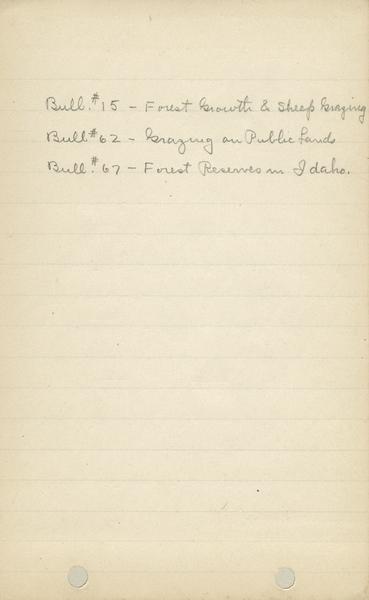 Bull. #15 - Forest Growth & Sheep Grazing
Bull #62 - Grazing on Public Lands
Bull. #67 - Forest Reserves in Idaho.